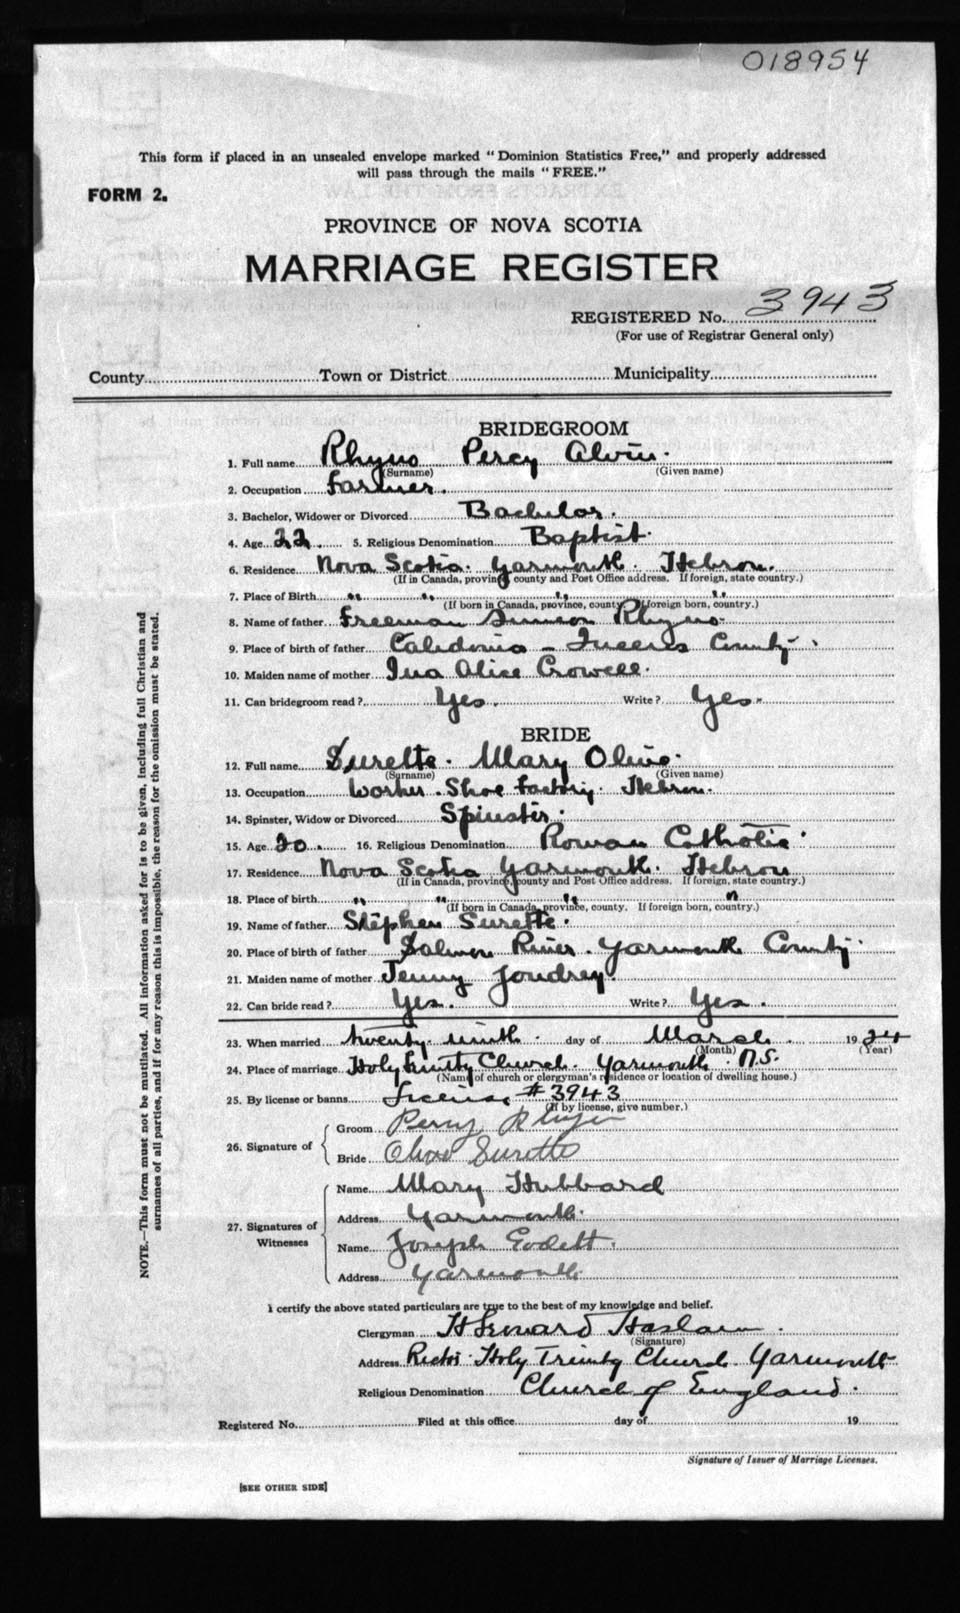 018954
This form if placed in an unsealed envelope marked "Dominion Statistics Free," and properly addressed
will pass through the mails "FREE."
FORM 2.
PROVINCE OF NOVA SCOTIA
MARRIAGE REGISTER
REGISTERED No. 3943
(For use of Registrar General only)
County Town or District Municipality
BRIDEGROOM
1. Full name Rhyno Percy Alvin.
(Surname) (Given name)
2. Occupation Farmer.
3. Bachelor, Widower or Divorced Bachelor.
4. Age 22. 5. Religious Denomination Baptist.
6. Residence Nova Scotia. Yarmouth. Hebron.
(If in Canada, province, county and Post Office address. If foreign, state country.)
7. Place of Birth " " " "
(If born in Canada, province, county. If foreign born, country.)
8. Name of father Freeman Simeon Rhyno.
9. Place of birth of father Caledonia - Queens County.
10. Maiden name of mother Ina Alice Crowell.
11. Can bridegroom read? Yes. Write? Yes.
BRIDE
12. Full name Surette. Mary Olive.
(Surname) (Given name)
13. Occupation Worker. Shoe Factory. Hebron.
14. Spinster, Widow or Divorced Spinster.
15. Age 20. 16. Religious Denomination Roman Catholic.
17. Residence Nova Scotia Yarmouth. Hebron
(If in Canada, province, county and Post Office address. If foreign, state country.)
18. Place of birth " " " "
(If born in Canada, province, county. If foreign born, country.)
19. Name of father Stephen Surette.
20. Place of birth of father Salmon River. Yarmouth County.
21. Maiden name of mother Jenny Joudrey.
22. Can bride read? Yes. Write? Yes.
23. When married twenty ninth. day of March. 1924
(Month) (Year)
24. Place of marriage Holy Trinity Church. Yarmouth. N.S.
(Name of church or clergyman's residence or location of dwelling house.)
25. By license or banns License #3943
(If by license, give number.)
26. Signature of
Groom Percy Rhyno
Bride Olive Surette
27. Signatures of Witnesses
Name Mary Hubbard
Address Yarmouth.
Name Joseph Godett.
Address Yarmouth
I certify the above stated particulars are true to the best of my knowledge and belief.
Clergyman H Leonard Haslam.
(Signature)
Address Rector Holy Trinity Church. Yarmouth
Religious Denomination Church of England.
Registered No. Filed at this office day of 19
Signature of Issuer of Marriage Licenses.
[SEE OTHER SIDE]
NOTE.—This form must not be mutilated. All information asked for is to be given, including full Christian and
surnames of all parties, and if for any reason this is impossible, the reason for the omission must be stated.